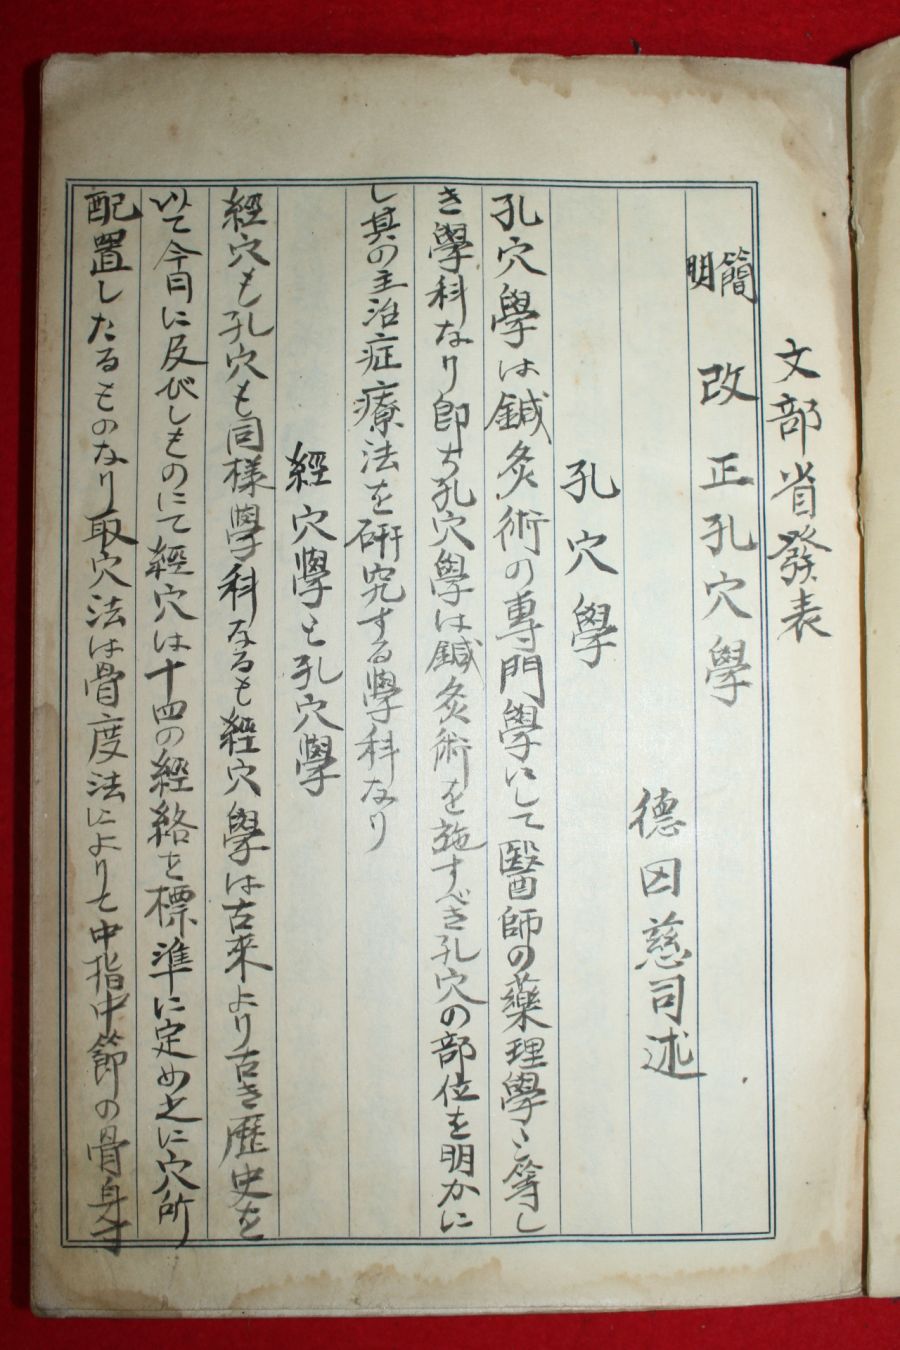 文部省發表
簡明 改正孔穴學
德田慈司述
孔穴學
孔穴學は鍼灸術の專門學にして醫師の藥理學と等し
き學科なり即ち孔穴學は鍼灸術を施すべき孔穴の部位を明かに
し其の主治症療法を研究する學科なり
經穴學と孔穴學
經穴も孔穴も同樣學科なるも經穴學は古来より古き歴史を
以て今日に及びしものにて經穴は十四の經絡を標準に定め之に穴所
配置したるものなり取穴法は骨度法によりて中指中節の骨身寸